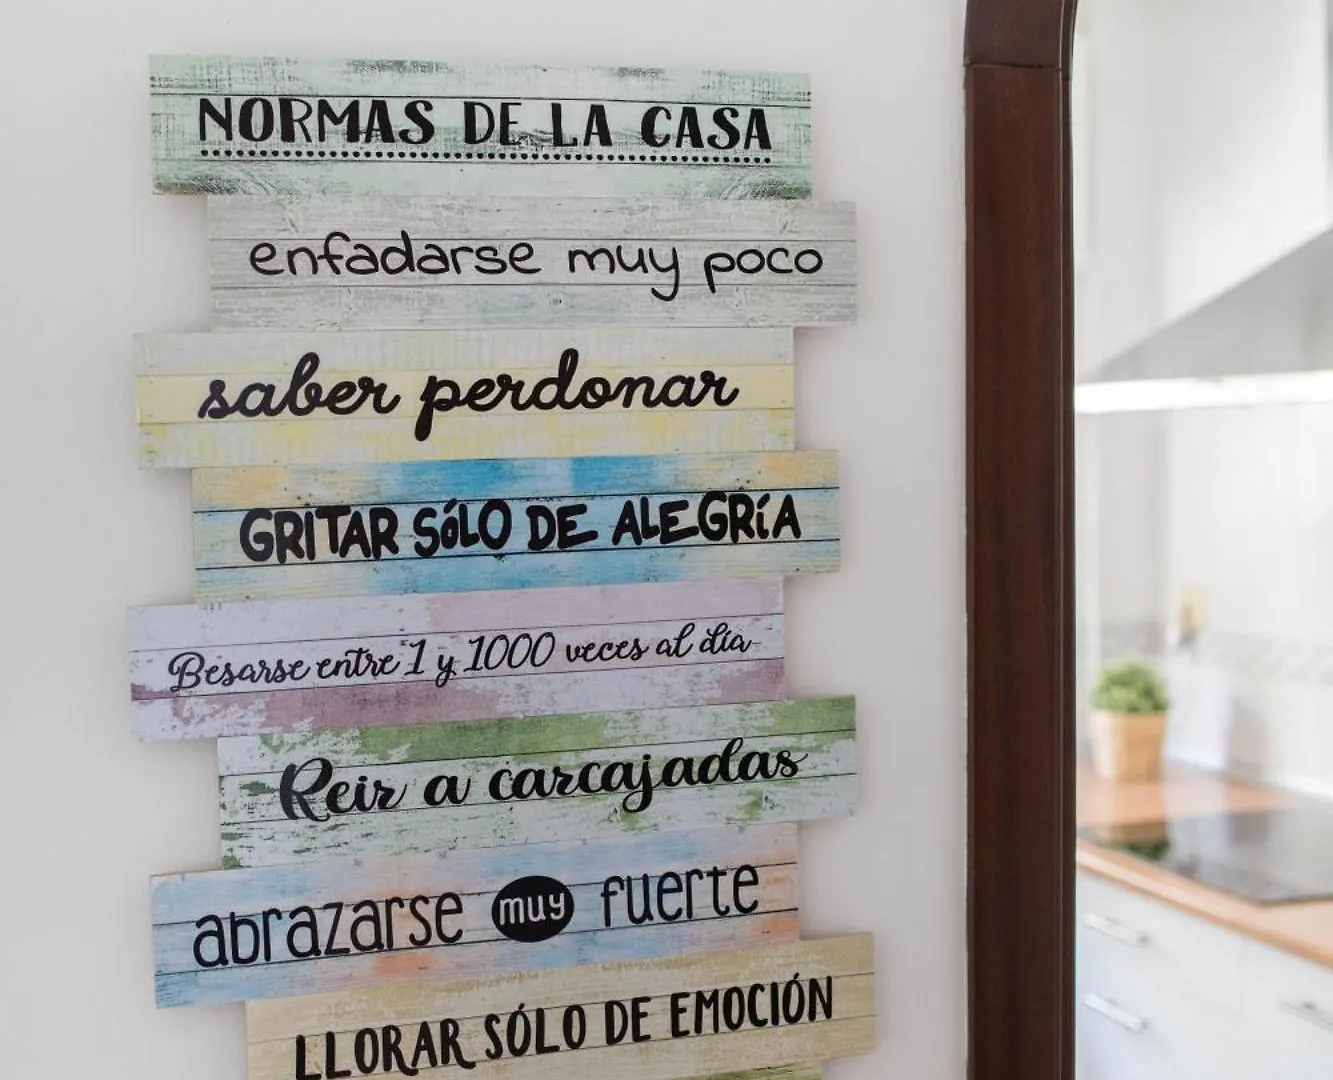 NORMAS DE LA CASA
enfadarse muy poco
saber perdonar
GRITAR SÓLO DE ALEGRÍA
Besarse entre 1 y 1000 veces al día
Reir a carcajadas
abrazarse muy fuerte
LLORAR SÓLO DE EMOCIÓN